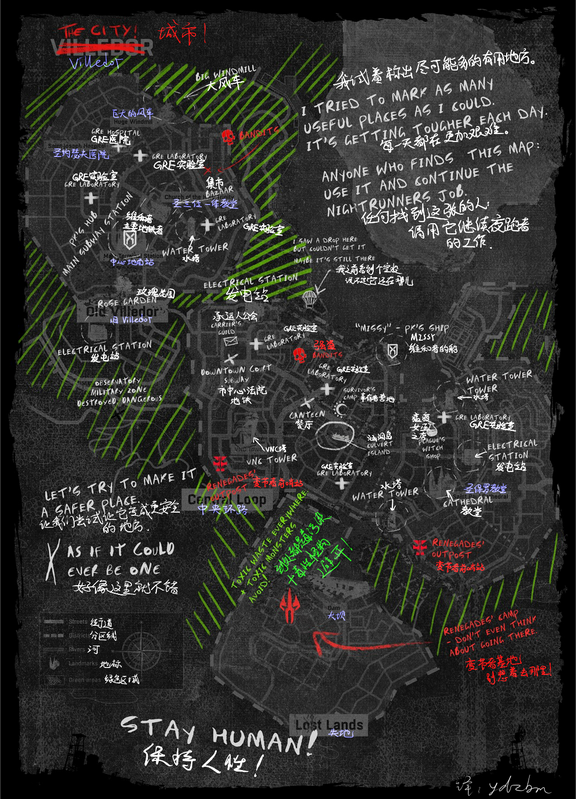 THE CITY!
城市!
VILLEDOR
Villedor
BIG WINDMILL
大风车
巨大的风车
我试着标出尽可能多的有用地方。
I TRIED TO MARK AS MANY
USEFUL PLACES AS I COULD.
IT'S GETTING TOUGHER EACH DAY.
每一天都在更加艰难。
ANYONE WHO FINDS THIS MAP:
USE IT AND CONTINUE THE
NIGHTRUNNERS JOB.
任何找到这张的人:
请用它继续夜跑者
的工作.
GRE HOSPITAL
GRE医院
BANDITS
GRE LABORATORY
GRE实验室
GRE实验室
GRE LABORATORY
集市
BAZAAR
PK'S HUB
MAIN SUBWAY STATION
GRE
LABORATORY
GRE实验室
WATER TOWER
水塔
中心地铁站
I SAW A DROP HERE
BUT COULDN'T GET IT
MAYBE IT'S STILL THERE
ELECTRICAL STATION
发电站
玫瑰花园
ROSE GARDEN
Old Villedor
旧 Villedor
ELECTRICAL STATION
发电站
OBSERVATORY
MILITARY ZONE
DESTROYED, DANGEROUS
承运人公会
CARRIER'S
GUILD
GRE实验室
GRE
LABORATORY
强盗
BANDITS
"MISSY" - PK'S SHIP
MISSY
维和者的船
DOWNTOWN COURT
SUBWAY
市中心法院
地铁
GRE
LABORATORY
GRE实验室
SURVIVOR'S
CAMP
幸存者营地
WATER TOWER
TOWER
水塔
CANTEEN
餐厅
CULVERT
ISLAND
GRE LABORATORY
GRE实验室
PLAGUE'S
WITCH
SHOP
ELECTRICAL
STATION
发电站
VNC塔
VNC TOWER
GRE实验室
GRE
LABORATORY
水塔
WATER TOWER
CATHEDRAL
教堂
RENEGADES'
Central Loop
中央环路
LET'S TRY TO MAKE IT
A SAFER PLACE.
让我们尝试让它变成更安全
的地方.
AS IF IT COULD
EVER BE ONE
好像这里就不错
TOXIC WASTE EVERYWHERE
+ TOXIC MONSTERS
AVOID!
避开!
RENEGADES'
OUTPOST
变节者前哨站
Streets
街道
Districts
分区线
Rivers
河
Landmarks
地标
Green areas
绿色区域
Dam
大坝
RENEGADES' CAMP
- DON'T EVEN THINK
ABOUT GOING THERE.
变节者基地!
别想着去那里!
Lost Lands
失地
STAY HUMAN!
保持人性!
译: ydzbm